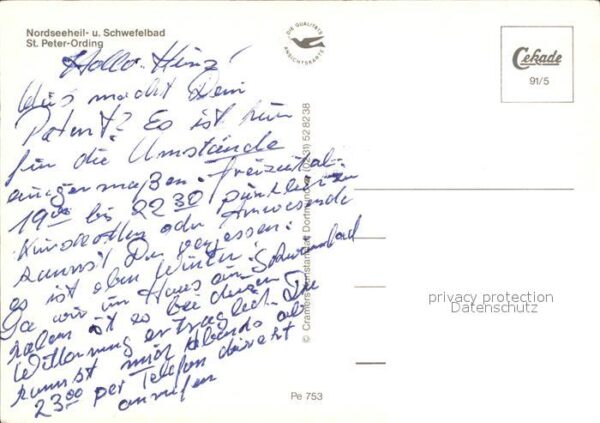 Nordseeheil- u. Schwefelbad
St. Peter-Ording
DIE QUALITÄTS
ANSICHTSKARTE
Cekade
91/5
Hallo Heinz!
Was macht Dein
Patent? Es ist hier
für die Umstände
einigermaßen. Freizeital.
19⁰⁰ bis 22³⁰ pünktlich
Kunderottln oder Anwesende
kannst Du vergessen:
es ist eben Winter.
Da wir im Haus ein Schwimmbad
haben ist es bei dieser
Witterung erträglich. Du
kannst mich Abends ab
23⁰⁰ per Telefon direkt
anrufen
© Cramers Kunstanstalt Dortmund (0231) 52 82 38
privacy protection
Datenschutz
Pe 753